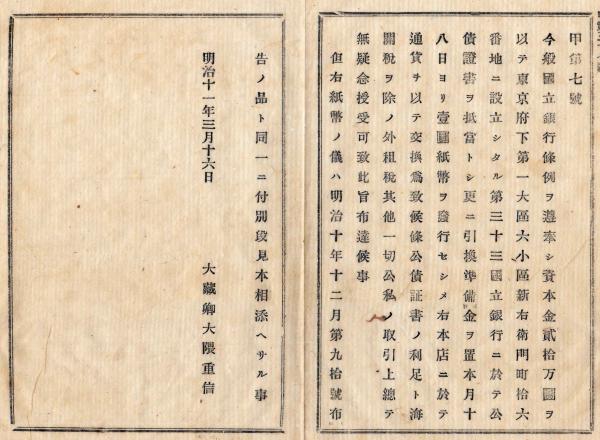 甲第七號
今般國立銀行條例ヲ遵奉シ資本金貳拾万圓ヲ
以テ東京府下第一大區六小區新右衛門町拾六
番地ニ設立シタル第三十三國立銀行ニ於テ公
債證書ヲ抵當トシ更ニ引換準備金ヲ置本月十
八日ヨリ壹圓紙幣ヲ發行セシメ右本店ニ於テ
通貨ヲ以テ交換爲致候條公債証書ノ利足ト海
關稅ヲ除ノ外租稅其他一切公私ノ取引上總テ
無疑念授受可致此旨布達候事
但右紙幣ノ儀ハ明治十年十二月第九拾號布
告ノ品ト同一ニ付別段見本相添ヘサル事
明治十一年三月十六日
大藏卿大隈重信